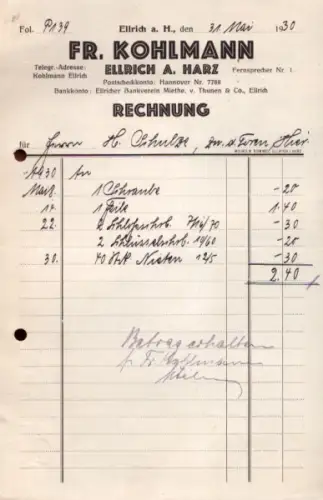 Fol. P139 Ellrich a. H., den 31 Mai 1930
FR. KOHLMANN
ELLRICH A. HARZ
Telegr.-Adresse:
Kohlmann Ellrich
Fernsprecher Nr. 1.
Postscheckkonto: Hannover Nr. 7768
Bankkonto: Ellricher Bankverein Miethe, v. Thunen & Co., Ellrich
RECHNUNG
für Herrn H. Schulze, Hier.
1930 An
1 Schraube -20
14. 1 Feile 1.40
22. 2 70 -30
2 10/60 -20
30. 40 Stk Nieten 12/5 -30
2.40
Betrag erhalten
p. Fr. Kohlmann